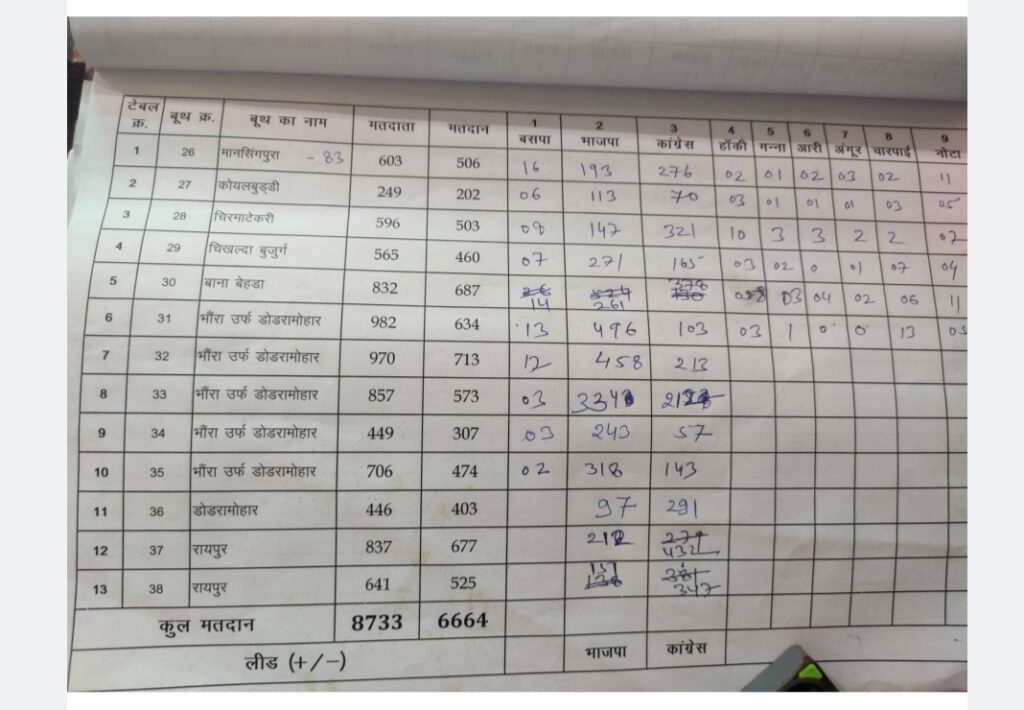 टेबल क्र. बूथ क्र. बूथ का नाम मतदाता मतदान 1 बसपा 2 भाजपा 3 कांग्रेस 4 हॉकी 5 गन्ना 6 आरी 7 अंगूर 8 चारपाई 9 नोटा
1 26 मानसिंगपुरा - 83 603 506 16 193 276 02 01 02 03 02 11
2 27 कोयलबुड्डी 249 202 06 113 70 03 01 01 01 03 05
3 28 चिरमाटेकरी 596 503 08 147 321 10 3 3 2 2 07
4 29 चिखल्दा बुजुर्ग 565 460 07 271 165 03 02 0 01 07 04
5 30 बाना बेहडा 832 687 14 261 378 03 04 02 06 11
6 31 भौंरा उर्फ डोडरामोहार 982 634 13 496 103 03 1 0 0 13 05
7 32 भौंरा उर्फ डोडरामोहार 970 713 12 458 213
8 33 भौंरा उर्फ डोडरामोहार 857 573 03
9 34 भौंरा उर्फ डोडरामोहार 449 307 03 243 57
10 35 भौंरा उर्फ डोडरामोहार 706 474 02 318 143
11 36 डोडरामोहार 446 403 97 291
12 37 रायपुर 837 677 212 432
13 38 रायपुर 641 525 151 347
कुल मतदान 8733 6664
लीड (+/-) भाजपा कांग्रेस